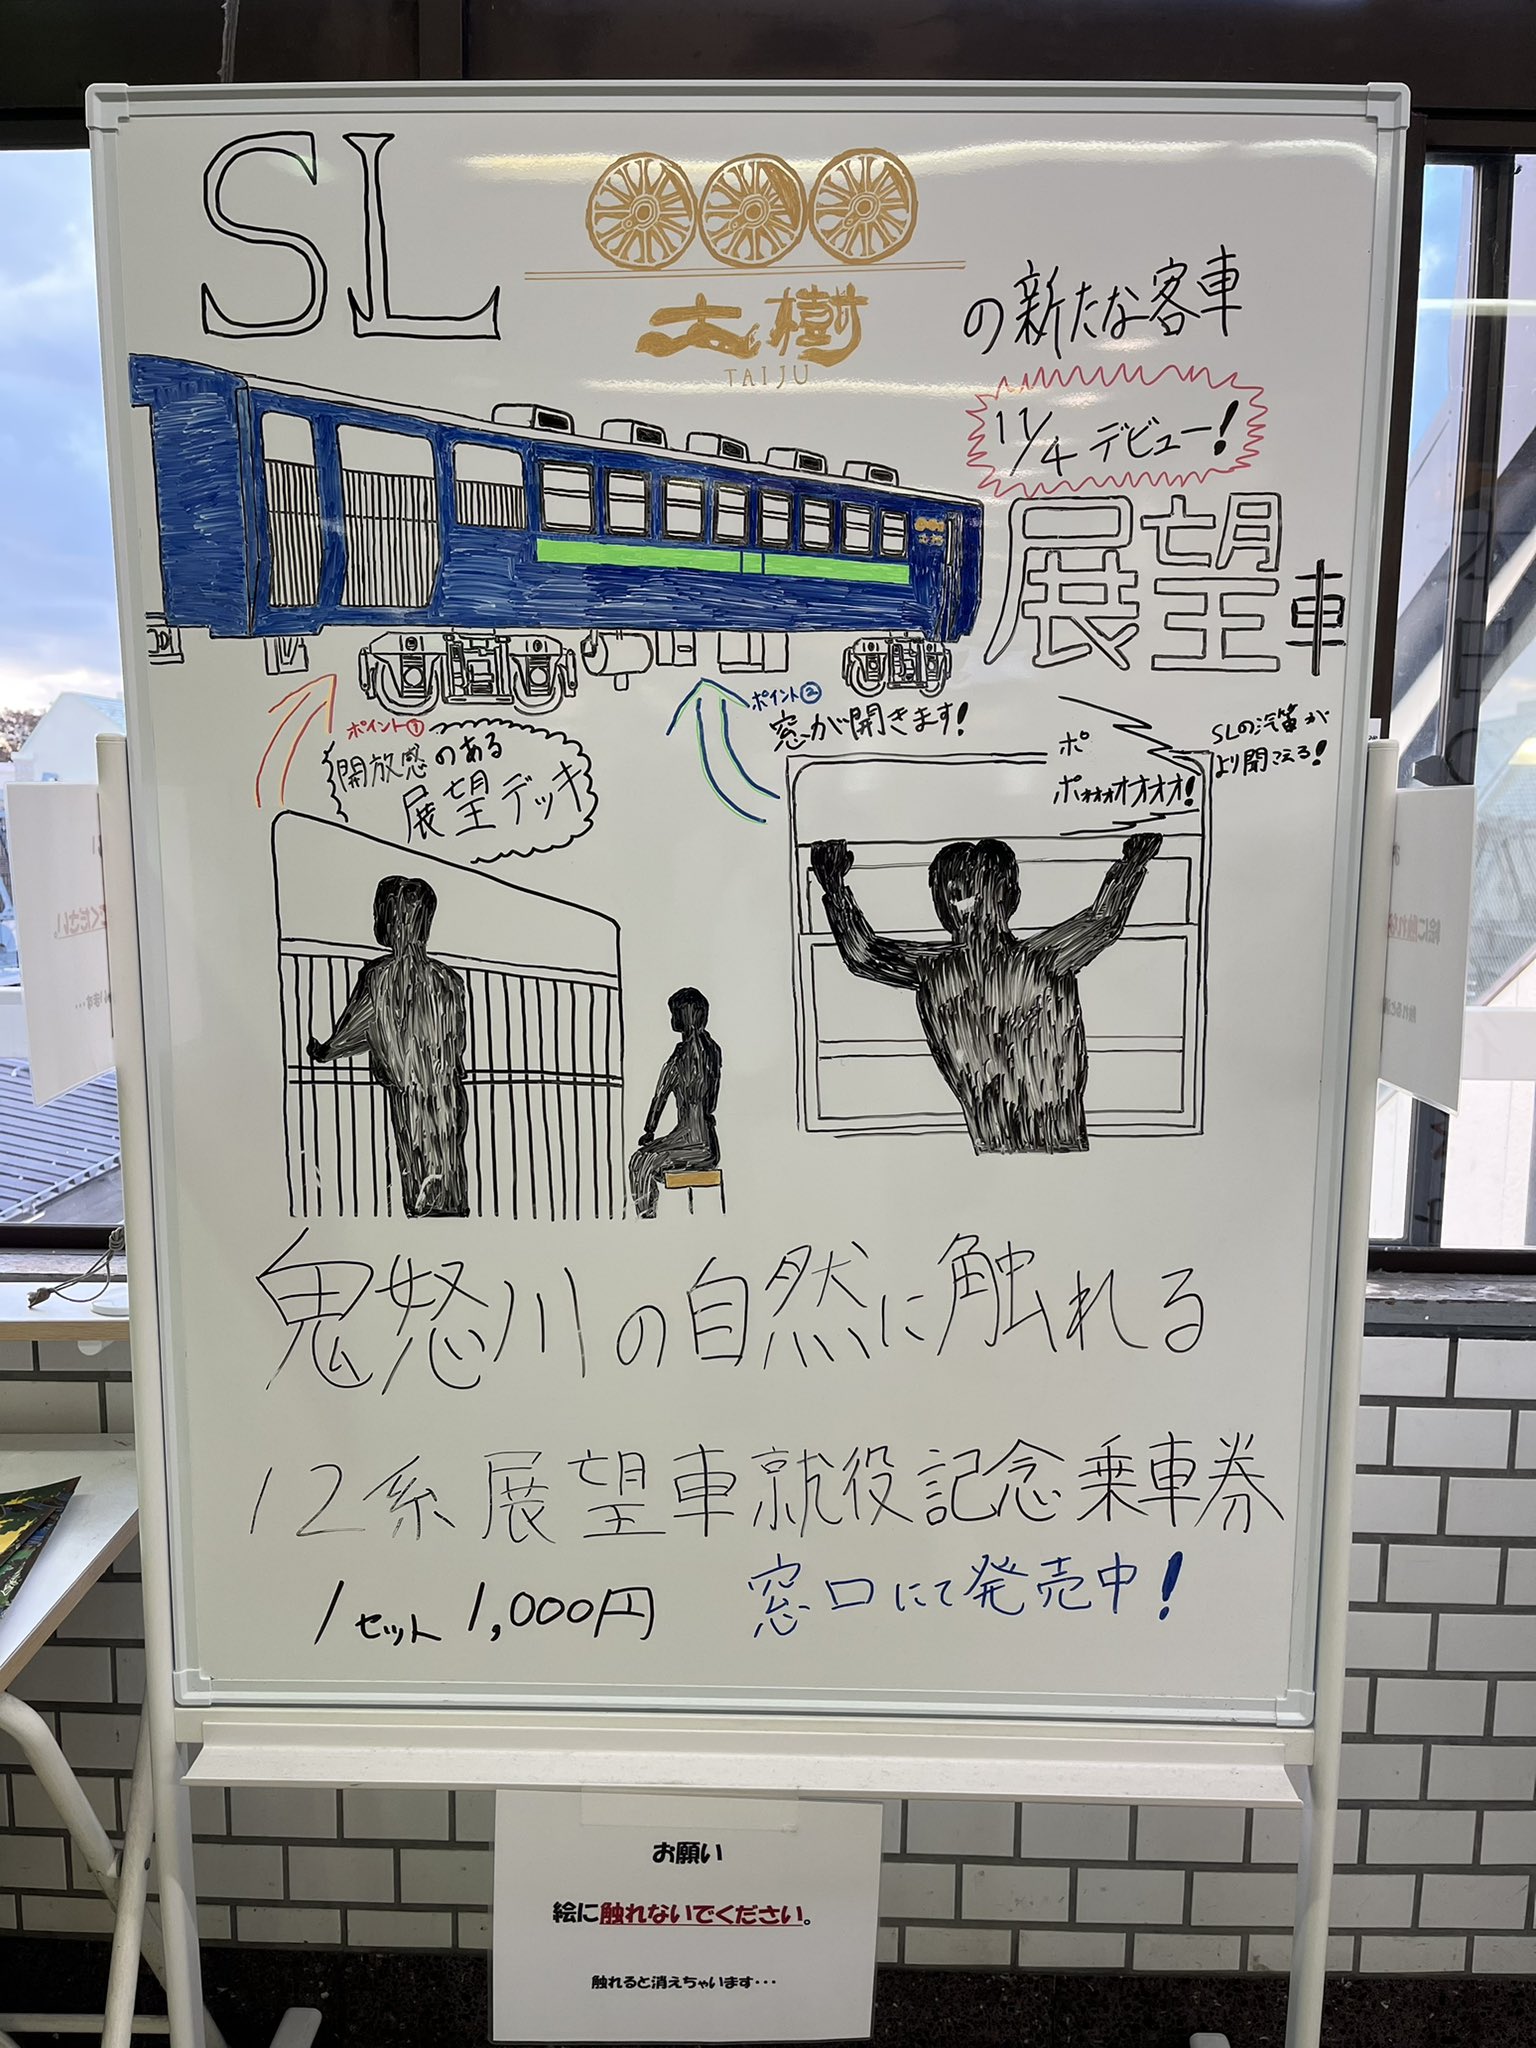 SL
大樹
TAIJU
の新たな客車
11/4 デビュー!
展望車
ポイント①
開放感のある
展望デッキ
ポイント②
窓が開きます!
ポ
ポォォォオオオオ!
SLの汽笛が
より聞こえる!
鬼怒川の自然に触れる
12系展望車就役記念乗車券
1セット 1,000円
窓口にて発売中!
お願い
絵に触れないでください。
触れると消えちゃいます・・・